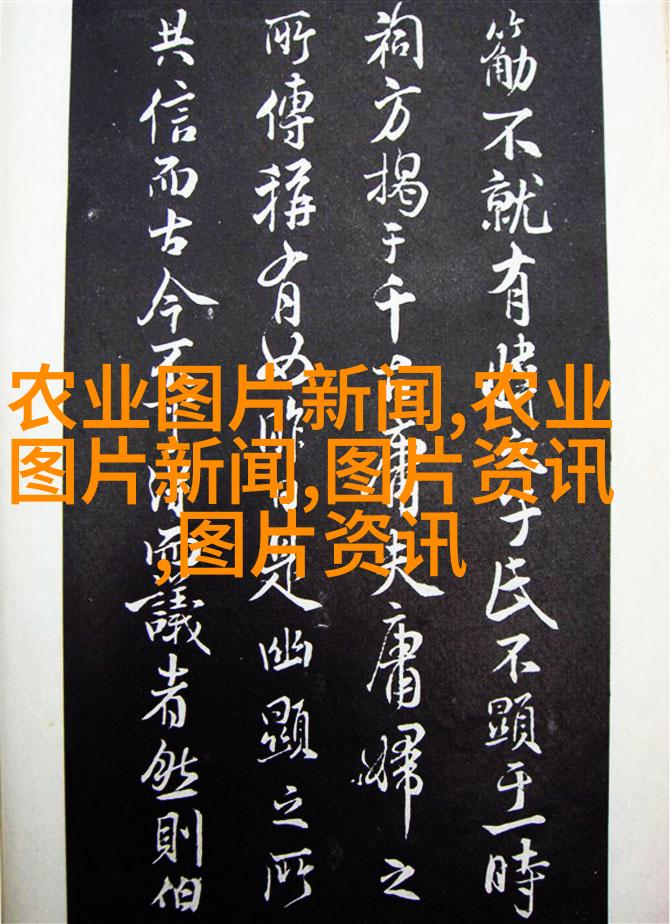 不就有氏不顯于一時
祠方揭于千古庸夫庸婦之
所傳稱有如昨日是幽顯之所
共信而古今議者然則伯
农业图片新闻,农业
图片新闻,图片资讯
,图片资讯